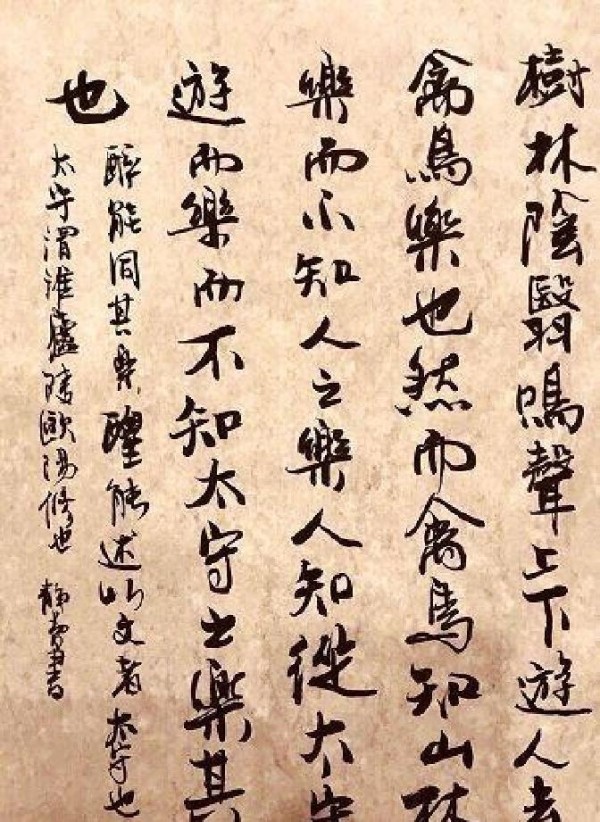 樹林陰翳鳴聲上下遊人去
禽鳥樂也然而禽鳥知山林
樂而不知人之樂人知從太守
遊而樂而不知太守之樂其
也
醉能同其樂醒能述以文者太守也
太守謂誰廬陵歐陽修也 靜書